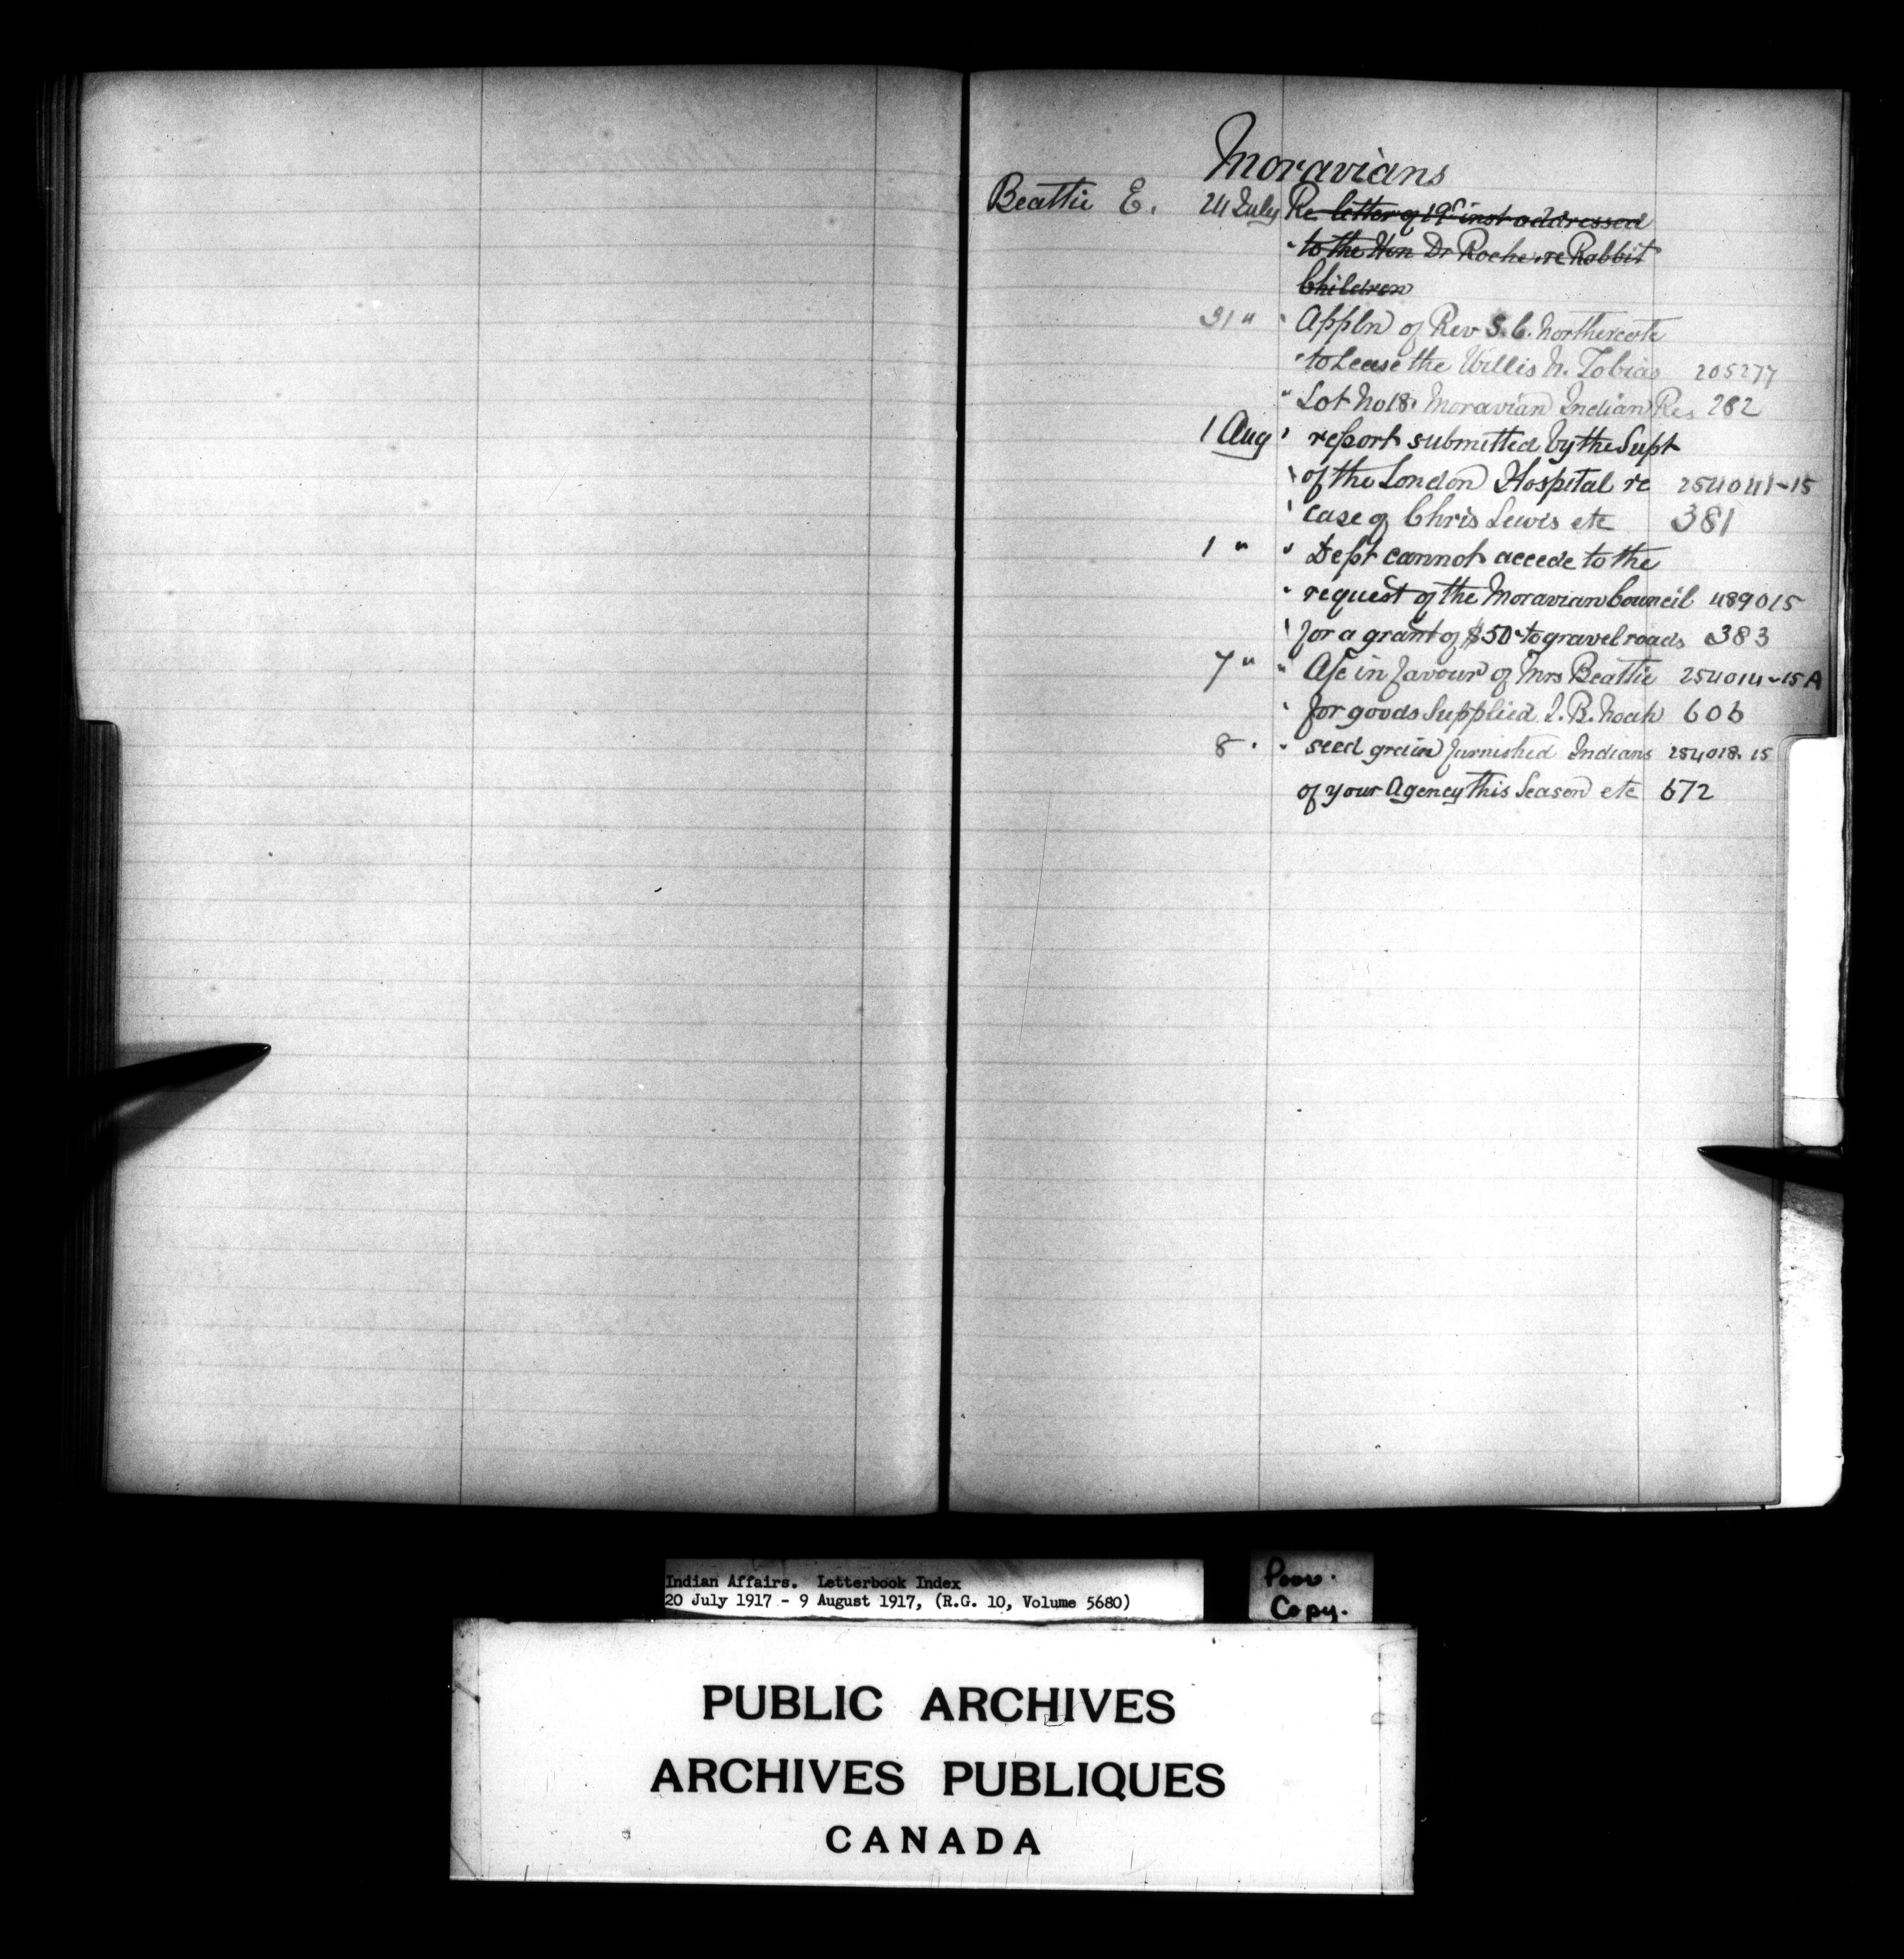 Moravians
Beattie E. 24 July Re letter of 19th inst addressed
" to the Hon Dr Roche re Rabbit
Children
31 " " Appln of Rev S. C. Northercote
" to Lease the Willis N. Tobias 205277
" Lot No 18 Moravian Indian Res 282
1 Aug " report submitted by the Supt
" of the London Hospital re 254041-15
" case of Chris Lewis etc 381
1 " " Dept cannot accede to the
" request of the Moravian Council 489015
" for a grant of $50 to gravel roads 383
7 " " A/c in favour of Mrs Beattie 254014-15A
" for goods Supplied J. B. Noah 606
8 " " seed grain furnished Indians 254018-15
of your Agency this Season etc 672
Indian Affairs. Letterbook Index
20 July 1917 - 9 August 1917, (R.G. 10, Volume 5680)
Poor.
Copy.
PUBLIC ARCHIVES
ARCHIVES PUBLIQUES
CANADA